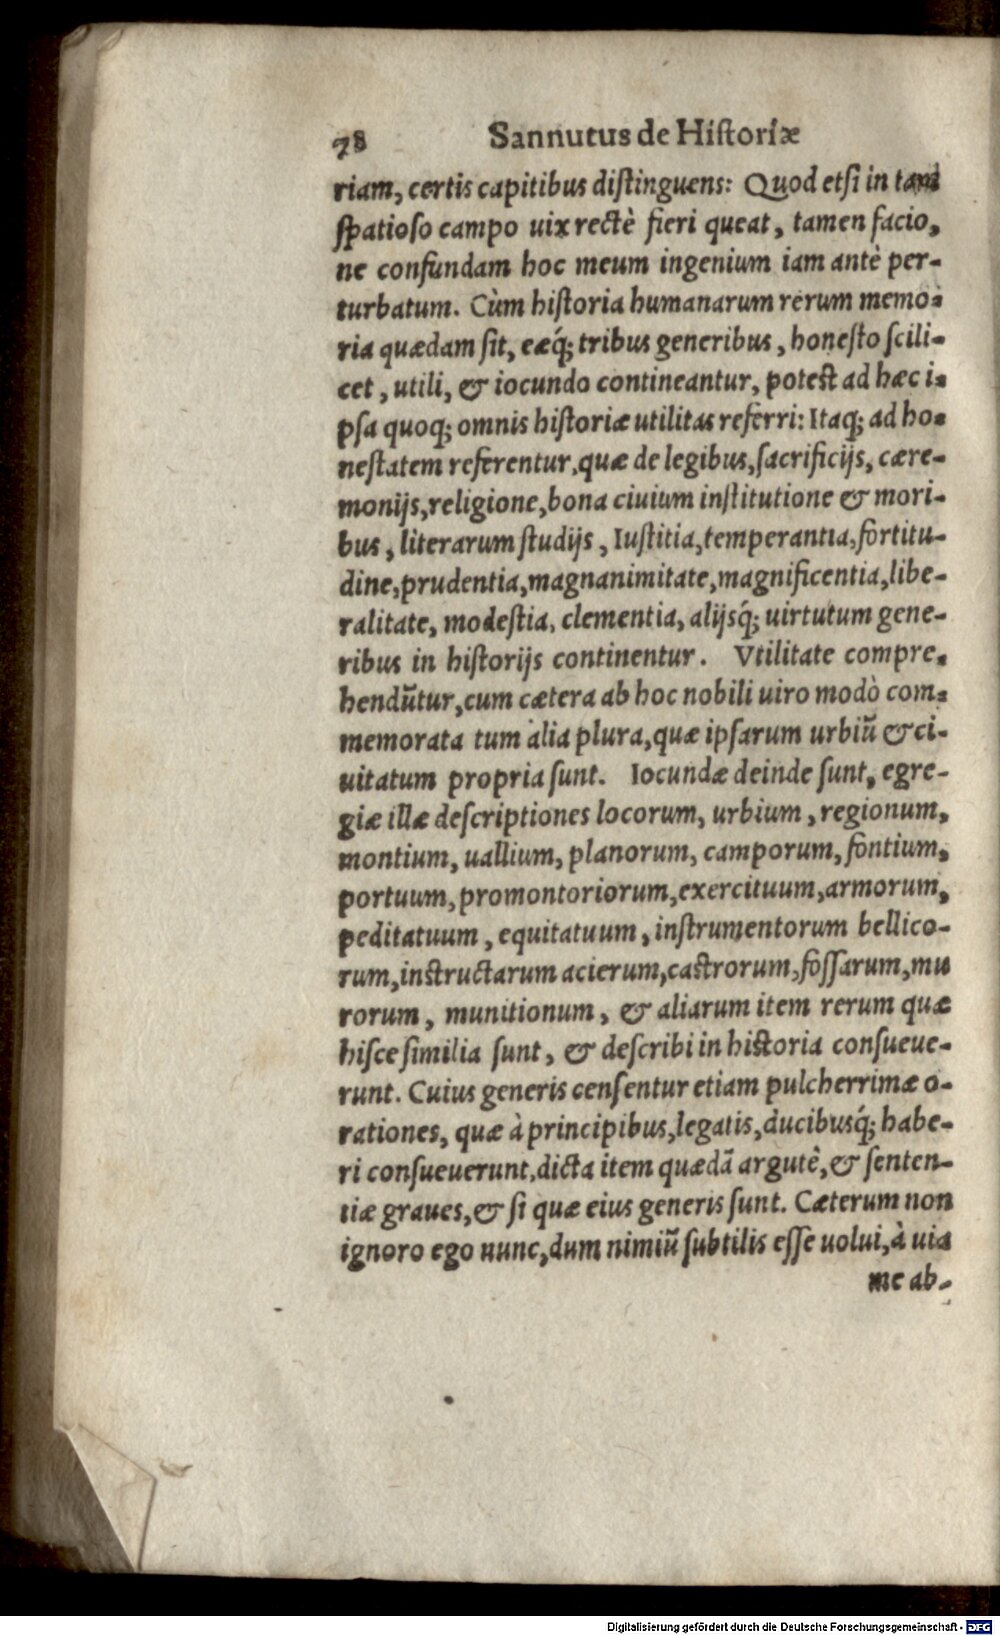 78 Sannutus de Historiæ
riam, certis capitibus distinguens: Quod etsi in tam
spatioso campo uix rectè fieri queat, tamen facio,
ne confundam hoc meum ingenium iam antè per-
turbatum. Cùm historia humanarum rerum memo-
ria quædam sit, eæq́; tribus generibus, honesto scili-
cet, utili, & iocundo contineantur, potest ad hæc i-
psa quoq; omnis historiæ utilitas referri: Itaq; ad ho-
nestatem referentur, quæ de legibus, sacrificijs, cære-
monijs, religione, bona ciuium institutione & mori-
bus, literarum studijs, Iustitia, temperantia, fortitu-
dine, prudentia, magnanimitate, magnificentia, libe-
ralitate, modestia, clementia, alijsq́; uirtutum gene-
ribus in historijs continentur. Vtilitate compre-
hendũtur, cum cætera ab hoc nobili uiro modò com-
memorata tum alia plura, quæ ipsarum urbiũ & ci-
uitatum propria sunt. Iocundæ deinde sunt, egre-
giæ illæ descriptiones locorum, urbium, regionum,
montium, uallium, planorum, camporum, fontium,
portuum, promontoriorum, exercituum, armorum,
peditatuum, equitatuum, instrumentorum bellico-
rum, instructarum acierum, castrorum, fossarum, mu
rorum, munitionum, & aliarum item rerum quæ
hisce similia sunt, & describi in historia consueue-
runt. Cuius generis censentur etiam pulcherrimæ o-
rationes, quæ à principibus, legatis, ducibusq́; habe-
ri consueuerunt, dicta item quædã argutè, & senten-
tiæ graues, & si quæ eius generis sunt. Cæterum non
ignoro ego nunc, dum nimiũ subtilis esse uolui, à uia
me ab-
Digitalisierung gefördert durch die Deutsche Forschungsgemeinschaft - DFG